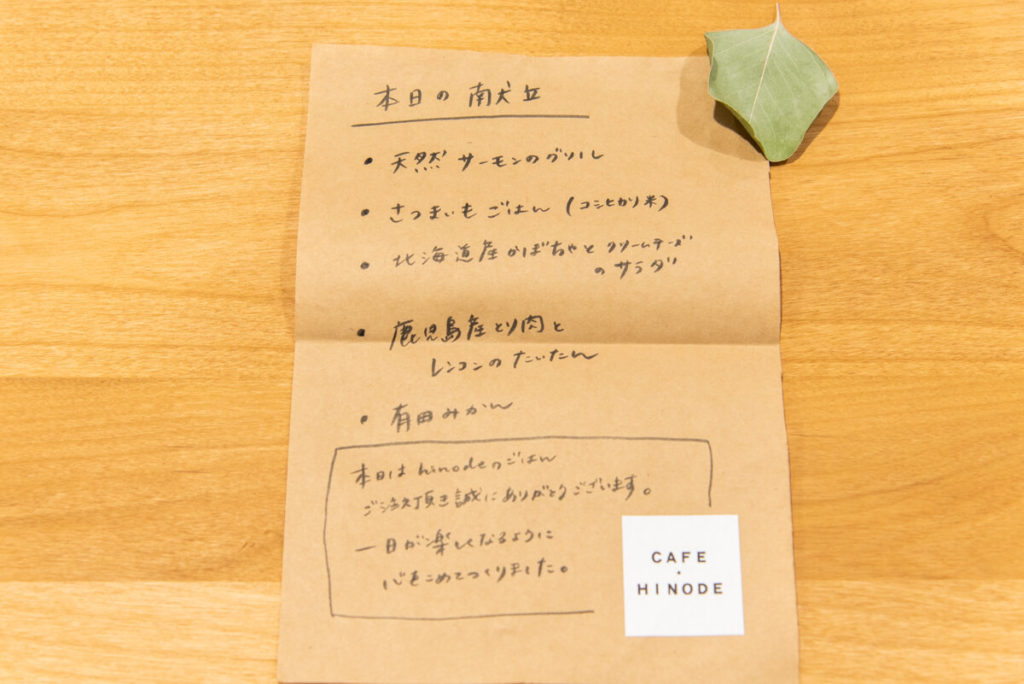 本日の 献立
• 天然 サーモンのグリル
• さつまいも ごはん (コシヒカリ米)
• 北海道産かぼちゃと クリームチーズ
のサラダ
• 鹿児島産とり肉と
レンコンのたいたん
• 有田みかん
本日は hinodeのごはん
ご注文頂き誠にありがとうございます。
一日が楽しくなるように
心をこめてつくりました。
CAFE
・
HINODE